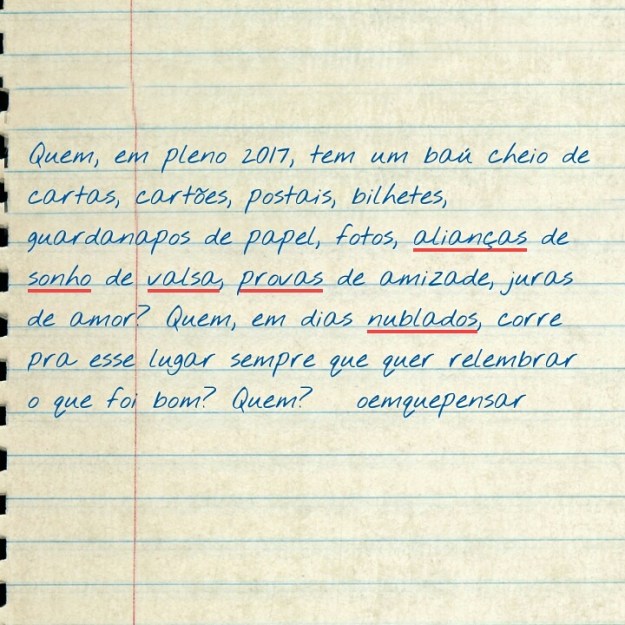 Quem, em pleno 2017, tem um baú cheio de
cartas, cartões, postais, bilhetes,
guardanapos de papel, fotos, alianças de
sonho de valsa, provas de amizade, juras
de amor? Quem, em dias nublados, corre
pra esse lugar sempre que quer relembrar
o que foi bom? Quem? oemquepensar